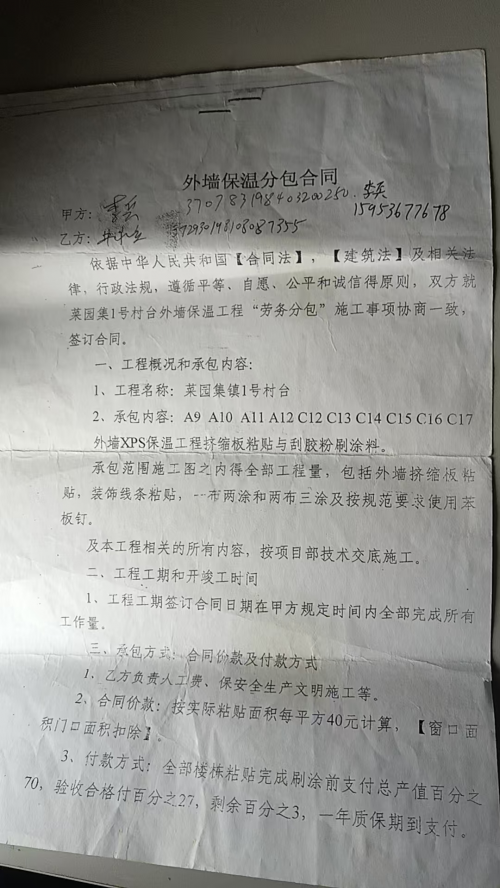 外墙保温分包合同
甲方: 370783198403200250 李兵
乙方: 372930198108087355 15953677678
依据中华人民共和国【合同法】，【建筑法】及相关法
律，行政法规，遵循平等、自愿、公平和诚信得原则，双方就
菜园集1号村台外墙保温工程“劳务分包”施工事项协商一致，
签订合同。
一、工程概况和承包内容:
1、工程名称: 菜园集镇1号村台
2、承包内容: A9 A10 A11 A12 C12 C13 C14 C15 C16 C17
外墙XPS保温工程挤缩板粘贴与刮胶粉刷涂料。
承包范围施工图之内得全部工程量，包括外墙挤缩板粘
贴，装饰线条粘贴，一布两涂和两布三涂及按规范要求使用苯
板钉。
及本工程相关的所有内容，按项目部技术交底施工。
二、工程工期和开竣工时间
1、工程工期签订合同日期在甲方规定时间内全部完成所有
工作量。
三、承包方式: 合同价款及付款方式
1. 乙方负责人工费、保安全生产文明施工等。
2、合同价款: 按实际粘贴面积每平方40元计算，【窗口面
积门口面积扣除】。
3、付款方式: 全部楼栋粘贴完成刷涂前支付总产值百分之
70，验收合格付百分之27，剩余百分之3，一年质保期到支付。